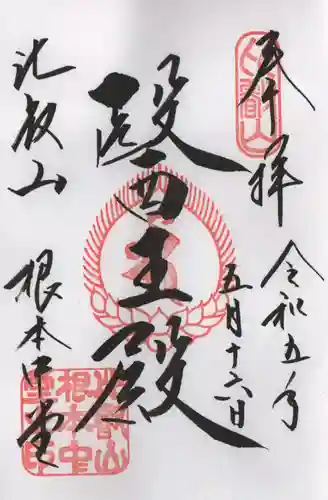 奉拝
令和五年
五月十六日
醫王殿
比叡山
根本中堂
比叡山
比叡山根本中堂